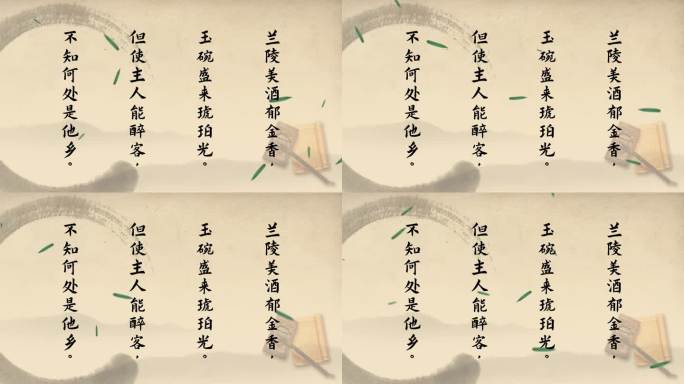 兰陵美酒郁金香，
玉碗盛来琥珀光。
但使主人能醉客，
不知何处是他乡。
兰陵美酒郁金香，
玉碗盛来琥珀光。
但使主人能醉客，
不知何处是他乡。
兰陵美酒郁金香，
玉碗盛来琥珀光。
但使主人能醉客，
不知何处是他乡。
兰陵美酒郁金香，
玉碗盛来琥珀光。
但使主人能醉客，
不知何处是他乡。